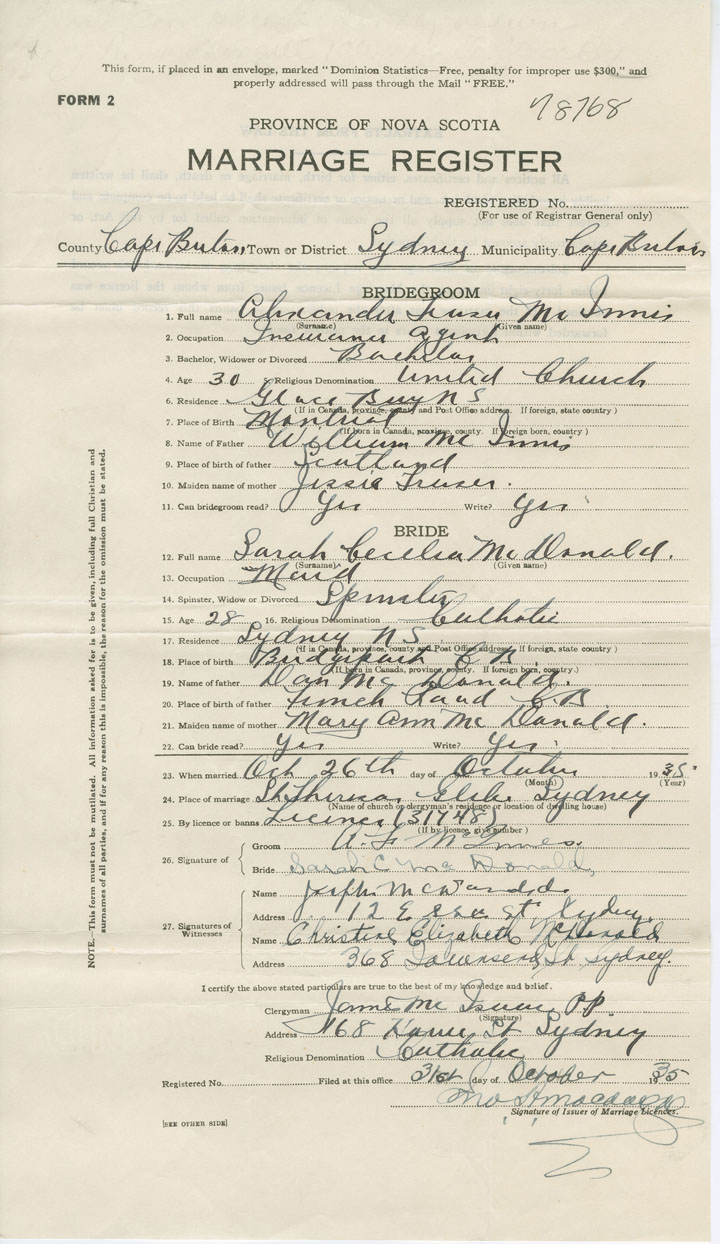 This form, if placed in an envelope, marked "Dominion Statistics—Free, penalty for improper use $300," and
properly addressed will pass through the Mail "FREE."
FORM 2
78768
PROVINCE OF NOVA SCOTIA
MARRIAGE REGISTER
REGISTERED No.
(For use of Registrar General only)
County Cape Breton Town or District Sydney Municipality Cape Breton
BRIDEGROOM
1. Full name Alexander Fraser Mc Innis
(Surname) (Given name)
2. Occupation Insurance Agent
3. Bachelor, Widower or Divorced Bachelor
4. Age 30 5. Religious Denomination United Church
6. Residence Glace Bay N S
(If in Canada, province, county and Post Office address. If foreign, state country)
7. Place of Birth Montreal
(If born in Canada, province, county. If foreign born, country)
8. Name of Father William Mc Innis
9. Place of birth of father Scotland
10. Maiden name of mother Jessie Fraser.
11. Can bridegroom read? Yes Write? Yes
BRIDE
12. Full name Sarah Cecelia Mc Donald.
(Surname) (Given name)
13. Occupation Maid
14. Spinster, Widow or Divorced Spinster
15. Age 28 16. Religious Denomination Catholic
17. Residence Sydney N S
(If in Canada, province, county and Post Office address. If foreign, state country)
18. Place of birth Bridgeport C. B.
(If born in Canada, province, county. If foreign born, country.)
19. Name of father Dan Mc Donald.
20. Place of birth of father French Road C. B.
21. Maiden name of mother Mary Ann Mc Donald.
22. Can bride read? Yes Write? Yes
23. When married Oct 26th day of October 1935
(Month) (Year)
24. Place of marriage St. Theresa Glebe Sydney
(Name of church or clergyman's residence or location of dwelling house)
25. By licence or banns Licence (31748)
(If by licence, give number)
26. Signature of Groom A. F McInnes.
Bride Sarah C Mc Donald,
27. Signatures of Witnesses Name Joseph
Address 12 St, Sydney
Name Christine Elizabeth McDonald
Address 368 Townsend St. Sydney.
I certify the above stated particulars are true to the best of my knowledge and belief.
Clergyman James Mc Isaac PP.
(Signature)
Address 168 St Sydney
Religious Denomination Catholic
Registered No. Filed at this office 31st day of October 1935
Signature of Issuer of Marriage Licences.
[SEE OTHER SIDE]
NOTE.—This form must not be mutilated. All information asked for is to be given, including full Christian and
surnames of all parties, and if for any reason this is impossible, the reason for the omission must be stated.